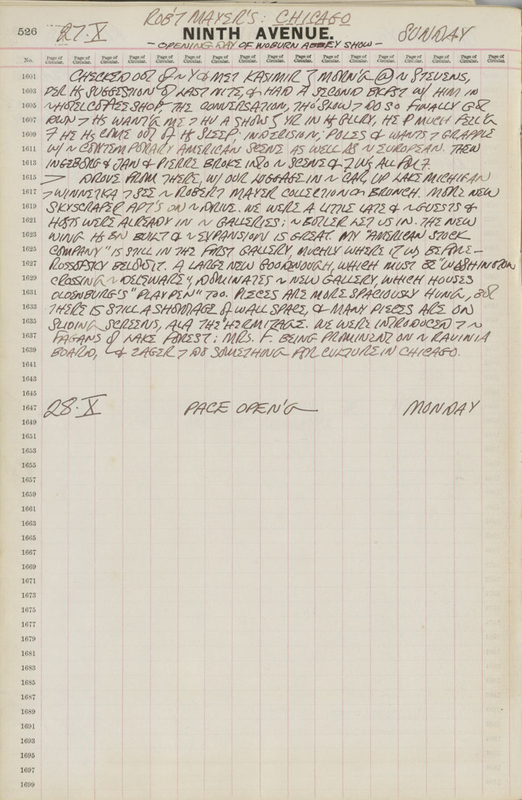 ROB'T MAYER'S: CHICAGO
526 27·X NINTH AVENUE. SUNDAY
— OPENING DAY OF WOBURN SHOW —
No. Page of Circular. Page of Circular. Page of Circular. Page of Circular. Page of Circular. Page of Circular. Page of Circular. Page of Circular. Page of Circular. Page of Circular. Page of Circular. Page of Circular. Page of Circular. Page of Circular. Page of Circular. Page of Circular.
1601 CHECKED OUT OF & MET KASIMIR MORN'G @ ~ STEVENS,
1603 PER HS SUGGESTION OF LAST NITE, & HAD A SECOND BKFST W/ HIM IN
1605 ~ HOTEL COFFEE SHOP. THE CONVERSATION, THO SLOW DO SO FINALLY GOT
1607 HS WANT'G ME HV A SHOW YR IN HS GALLRY, HE MUCH
1609 HE HS COME OUT OF HS SLEEP, INDECISION, POLES & WANTS GRAPPLE
1611 W/ ~ CONTEMPORARY AMERICAN SCENE AS WELL AS ~ EUROPEAN. THEN
1613 INGEBORG & JAN & PIERRE BROKE INTO ~ SCENE &
1615 DROVE FROM THERE, W/ OUR LUGGAGE IN ~ CAR UP LAKE MICHIGAN
1617 WINNETKA SEE ~ ROBERT MAYER COLLECTION & BRUNCH. MORE NEW
1619 SKYSCRAPER APT'S ON ~ DRIVE. WE WERE A LITTLE LATE & ~ GUESTS &
1621 HOSTS WERE ALREADY IN ~ GALLERIES; ~ BUTLER LET US IN. THE NEW
1623 WING HS BN BUILT & ~ EXPANSION IS GREAT. MY "AMERICAN STUCK
1625 COMPANY" IS STILL IN THE FIRST GALLERY, MUCHLY WHERE IT WS BEFORE —
1627 ROSOFSKY BELOW IT. A LARGE NEW GOODNOUGH, WHICH MUST BE "WASHINGTON
1629 CROSSING ~ DELEWARE", DOMINATES ~ NEW GALLERY, WHICH HOUSES
1631 OLDENBURG'S "PLAY PEN" TOO. PIECES ARE MORE SPACIOUSLY HUNG, BUT
1633 THERE IS STILL A SHORTAGE OF WALL SPACE, & MANY PIECES ARE ON
1635 SLIDING SCREENS, A LA THE HERMITAGE. WE WERE INTRODUCED ~
1637 FAGANS OF LAKE FOREST; MRS. F. BEING PROMINENT ON ~ RAVINIA
1639 BOARD, & EAGER DO SOMETHING FOR CULTURE IN CHICAGO.
1641
1643
1645
1647 28·X PACE OPEN'G MONDAY
1649
1651
1653
1655
1657
1659
1661
1663
1665
1667
1669
1671
1673
1675
1677
1679
1681
1683
1685
1687
1689
1691
1693
1695
1697
1699